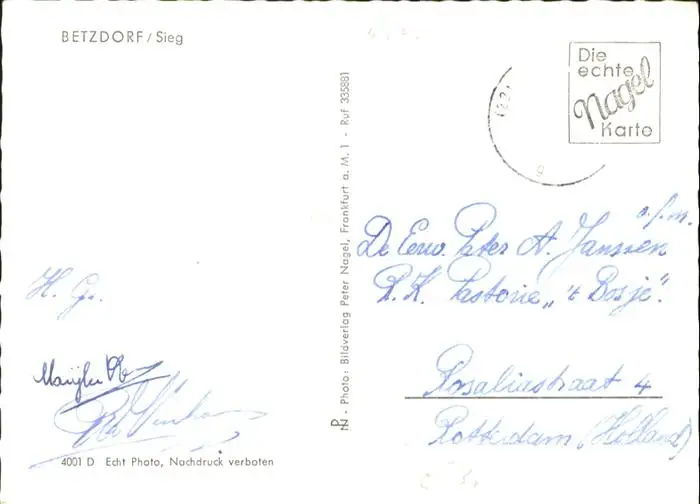 BETZDORF / Sieg
Die
echte
Nagel
Karte
PN - Photo: Bildverlag Peter Nagel, Frankfurt a. M. 1 - Ruf 335881
o.f.m.
De Eerw. Pater A. Janssen
R.K. Pastorie „'t Bosje".
Rosaliastraat 4
Rotterdam (Holland)
H. Gr.
4001 D Echt Photo, Nachdruck verboten